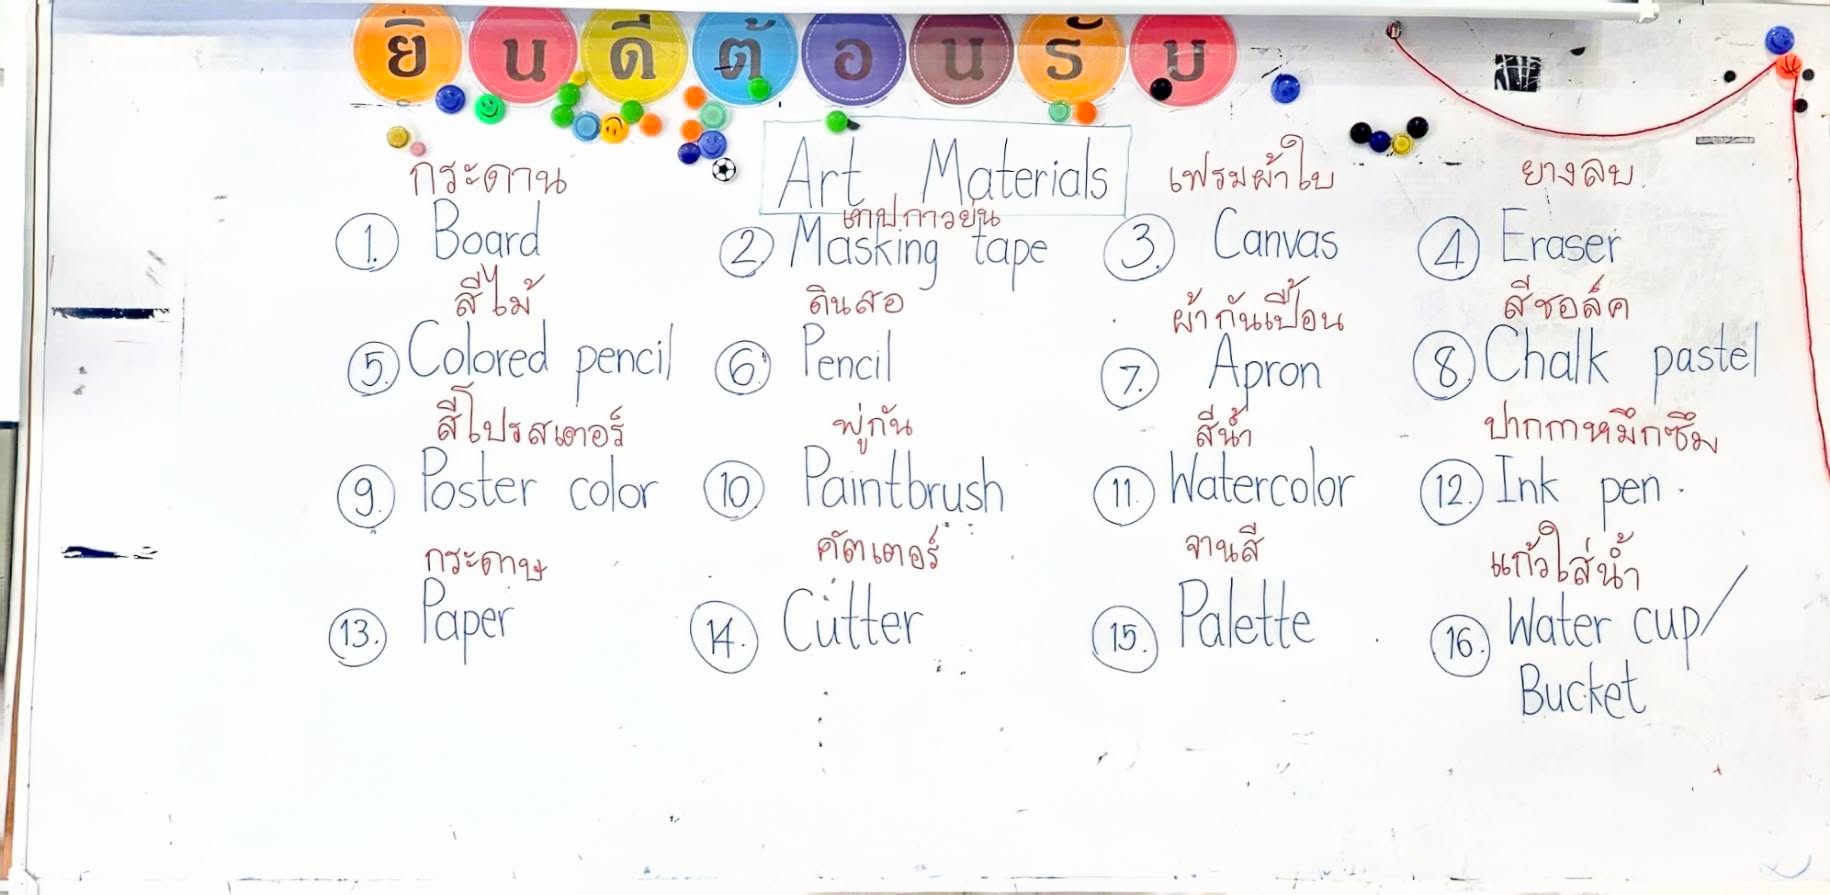 ยินดีต้อนรับ
Art Materials
กระดาน เทปกาวย่น เฟรมผ้าใบ ยางลบ
1. Board 2. Masking tape 3. Canvas 4. Eraser
สีไม้ ดินสอ ผ้ากันเปื้อน สีชอล์ค
5. Colored pencil 6. Pencil 7. Apron 8. Chalk pastel
สีโปรสเตอร์ พู่กัน สีน้ำ ปากกาหมึกซึม
9. Poster color 10. Paintbrush 11. Watercolor 12. Ink pen
กระดาษ คัตเตอร์ จานสี แก้วใส่น้ำ
13. Paper 14. Cutter 15. Palette 16. Water cup/
Bucket